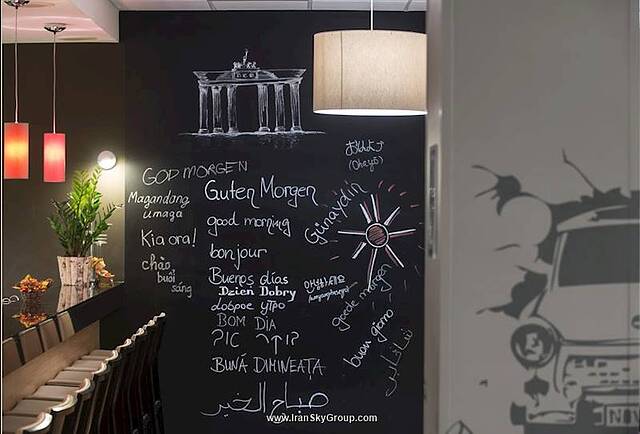 GOD MORGEN
Magandang
umaga
Kia ora!
chào
buổi
sáng
Guten Morgen
good morning
bonjour
Buenos días
Dzień Dobry
доброе утро
BOM DIA
BUNĂ DIMINEAȚA
صباح الخير
(Ohayō)
Günaydin
goede morgen
buon giorno
www.IranSkyGroup.com